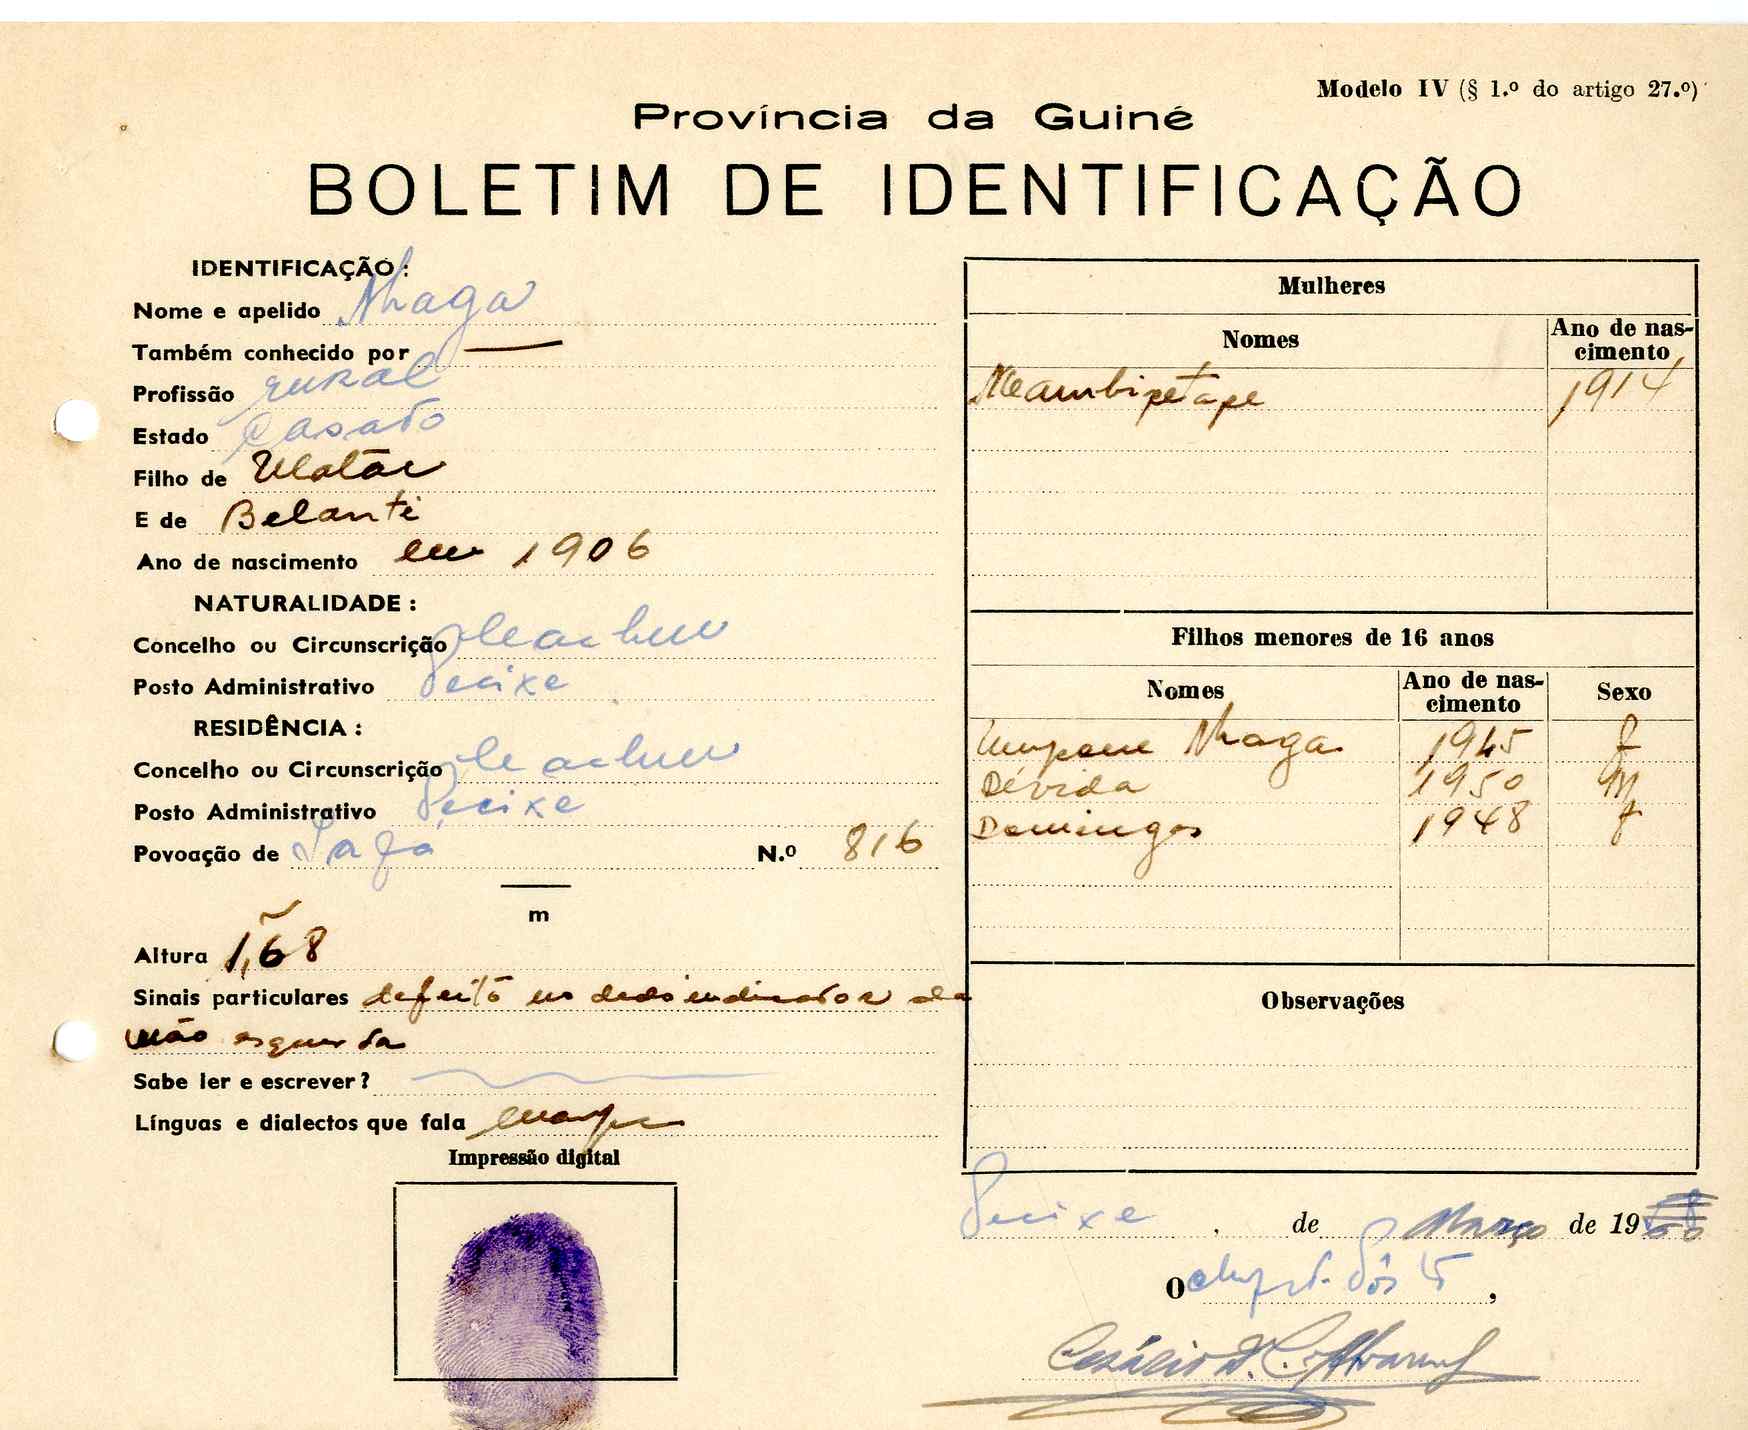 Modelo IV (§ 1.º do artigo 27.º)
Província da Guiné
BOLETIM DE IDENTIFICAÇÃO
IDENTIFICAÇÃO:
Nome e apelido Nhaga
Também conhecido por —
Profissão rural
Estado Casado
Filho de
E de Belanti
Ano de nascimento em 1906
NATURALIDADE:
Concelho ou Circunscrição Cacheu
Posto Administrativo Pecixe
RESIDÊNCIA:
Concelho ou Circunscrição Cacheu
Posto Administrativo Pecixe
Povoação de N.º 816
m
Altura 1,68
Sinais particulares defeito no dedo indicador da
mão esquerda
Sabe ler e escrever?
Línguas e dialectos que fala
Impressão digital
Mulheres
Nomes Ano de nas-
cimento
1914
Filhos menores de 16 anos
Nomes Ano de nas-
cimento Sexo
Nhaga 1945 f
Dévida 1950 m
Domingos 1948 f
Observações
Pecixe, de Março de 19
O